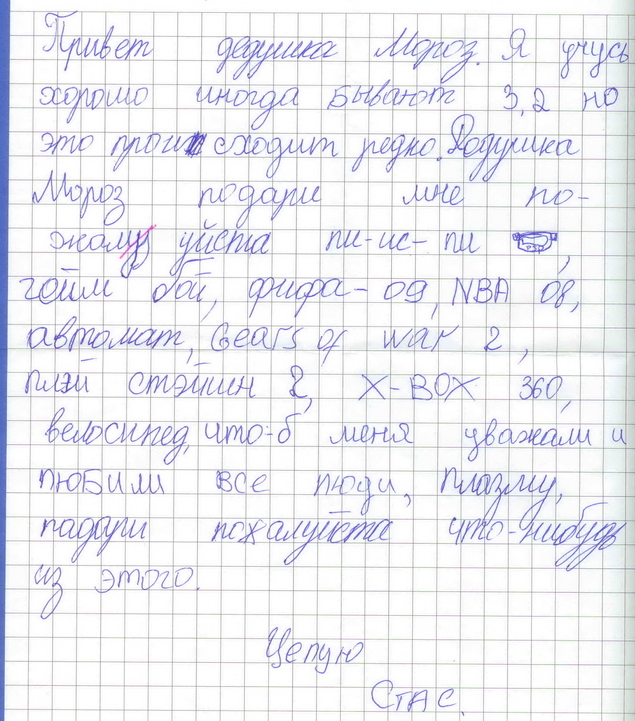 Привет дедушка Мороз. Я учусь
хорошо иногда бывают 3,2 но
это происходит редко. Дедушка
Мороз подари мне по-
жалуйста пи-ис-пи ,
гейм бой, фифа-09, NBA 08,
автомат, Gears of war 2,
плэй стэйшин 2, X-BOX 360,
велосипед, что-б меня уважали и
любили все люди, плазму,
падари пожалуйста что-нибудь
из этого.
Целую
Стас.